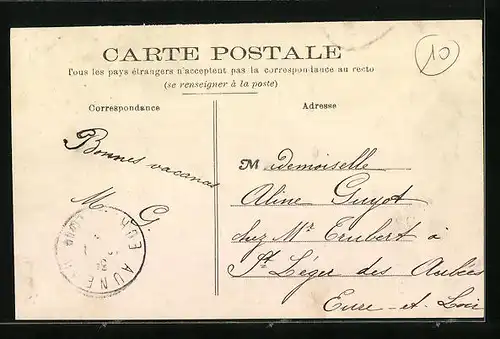 CARTE POSTALE
Tous les pays étrangers n'acceptent pas la correspondance au recto
(se renseigner à la poste)
Correspondance
Adresse
10
Bonnes vacances
M. G.
AUNEAU
Mademoiselle
Aline Guyot
chez Mr Erubert à
St Léger des Aubées
Eure-et-Loir